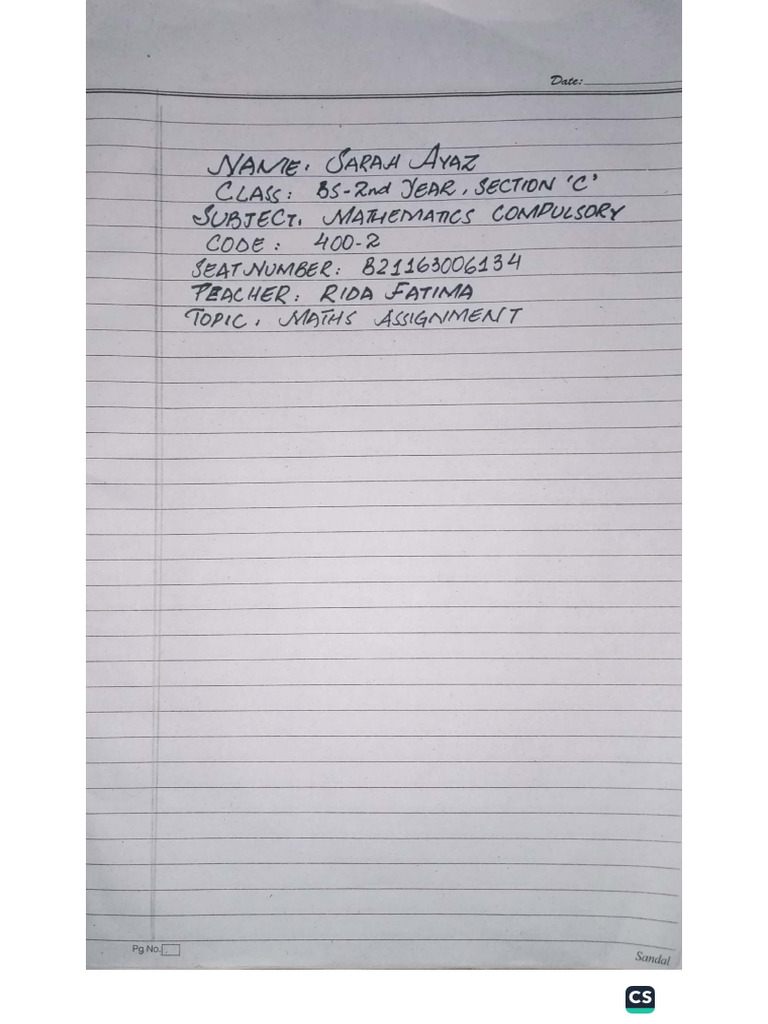 Date:
NAME: SARAH AYAZ
CLASS: BS-2nd YEAR, SECTION 'C'
SUBJECT: MATHEMATICS COMPULSORY
CODE: 400-2
SEAT NUMBER: B21163006134
TEACHER: RIDA FATIMA
TOPIC: MATHS ASSIGNMENT
Pg No.
Sandal
CS